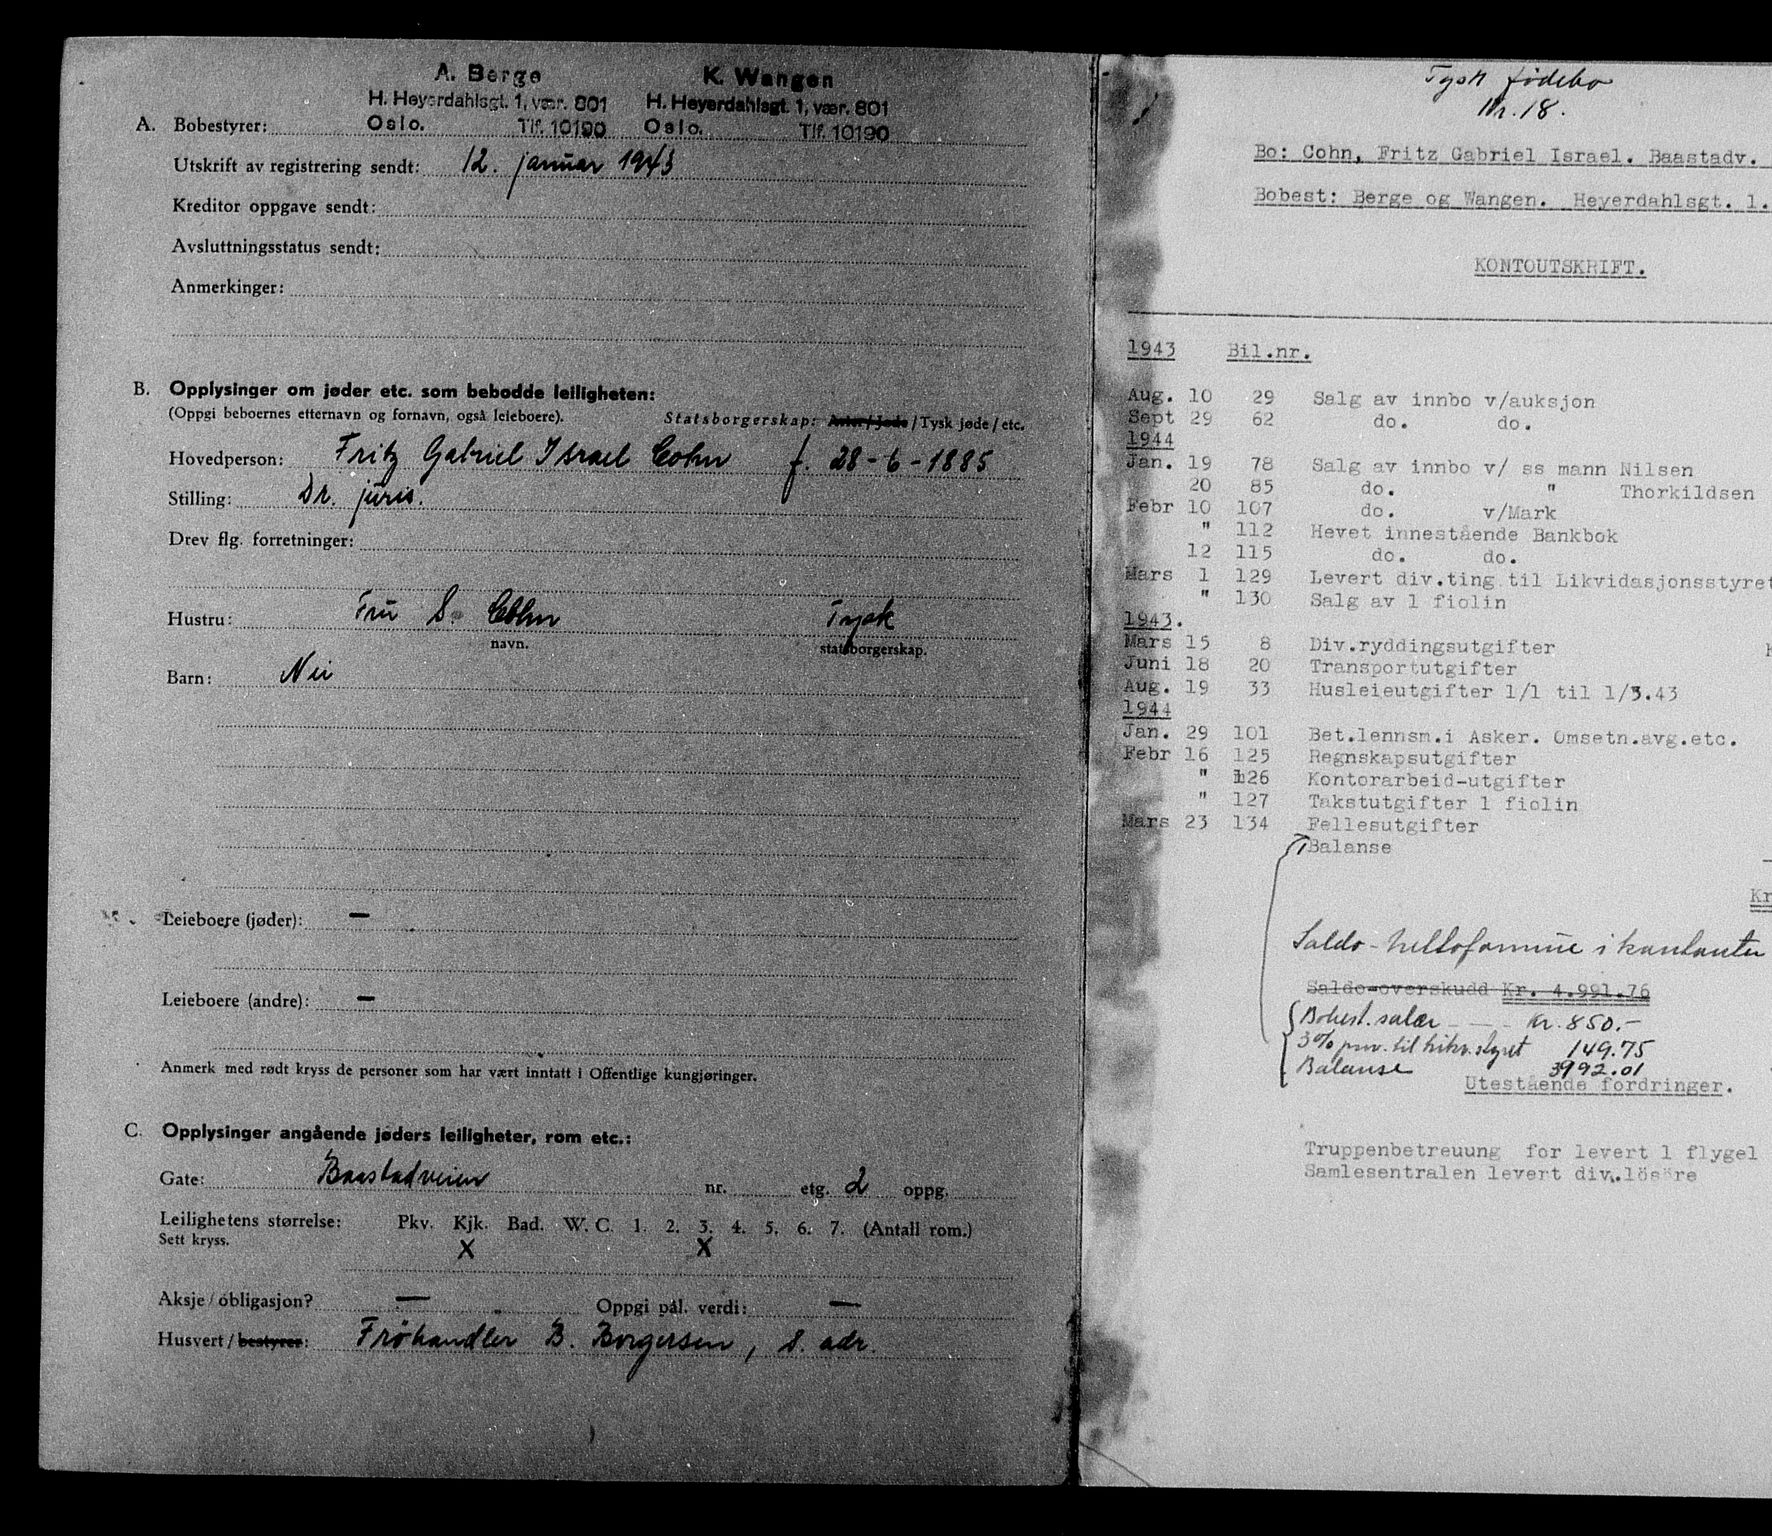 A. Berge
H. Heyerdahlsgt. 1, vær. 801
Oslo. Tlf. 10190
K. Wangen
H. Heyerdahlsgt. 1, vær. 801
Oslo. Tlf. 10190
A. Bobestyrer:
Utskrift av registrering sendt: 12. januar 1943
Kreditor oppgave sendt:
Avsluttningsstatus sendt:
Anmerkinger:
B. Opplysinger om jøder etc. som bebodde leiligheten:
(Oppgi beboernes etternavn og fornavn, også leieboere). Statsborgerskap: Arier/Jøde/Tysk jøde/etc.
Hovedperson: Fritz Gabriel Israel Cohn f. 28-6-1885
Stilling: Dr. juris.
Drev flg. forretninger:
Hustru: Fru S. Cohn Tysk
navn. statsborgerskap.
Barn: Nei
Leieboere (jøder): —
Leieboere (andre): —
Anmerk med rødt kryss de personer som har vært inntatt i Offentlige kungjøringer.
C. Opplysinger angående jøders leiligheter, rom etc.:
Gate: Baastadveien nr. etg. 2 oppg.
Leilighetens størrelse: Pkv. Kjk. Bad. W.C. 1. 2. 3. 4. 5. 6. 7. (Antall rom.)
Sett kryss. X X
Aksje/obligasjon? — Oppgi pål. verdi: —
Husvert/bestyrer: Frøhandler B. Borgersen, s. adr.
Tysk jødebo
Nr. 18.
Bo: Cohn, Fritz Gabriel Israel. Baastadv.
Bobest: Berge og Wangen. Heyerdahlsgt. 1.
KONTOUTSKRIFT.
1943 Bil.nr.
Aug. 10 29 Salg av innbo v/auksjon
Sept 29 62 do. do.
1944
Jan. 19 78 Salg av innbo v/ ss mann Nilsen
20 85 do. " Thorkildsen
Febr 10 107 do. v/Mark
" 112 Hevet innestående Bankbok
12 115 do. do.
Mars 1 129 Levert div.ting til Likvidasjonsstyret
" 130 Salg av 1 fiolin
1943.
Mars 15 8 Div.ryddingsutgifter
Juni 18 20 Transportutgifter
Aug. 19 33 Husleieutgifter 1/1 til 1/3.43
1944
Jan. 29 101 Bet.lennsm.i Asker. Omsetn.avg.etc.
Febr 16 125 Regnskapsutgifter
" 126 Kontorarbeid-utgifter
" 127 Takstutgifter 1 fiolin
Mars 23 134 Fellesutgifter
Balanse
Kr
Saldo - nettoformue i kontanter
Saldo=overskudd Kr. 4.991.76
Bobest. salær - - - Kr. 850.-
3% prov. til likv. styret 149.75
Balanse 3992.01
Utestående fordringer.
Truppenbetreuung for levert 1 flygel
Samlesentralen levert div.lösöre